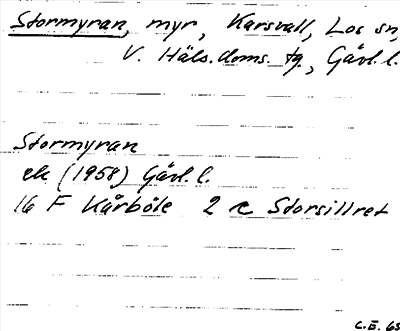 Stormyran, myr, Karsvall, Los sn,
V. Häls. doms. tg., Gävl. l.
Stormyran
ek (1958) Gävl. l.
16 F Kårböle 2 c Storsillret
C.E. 63